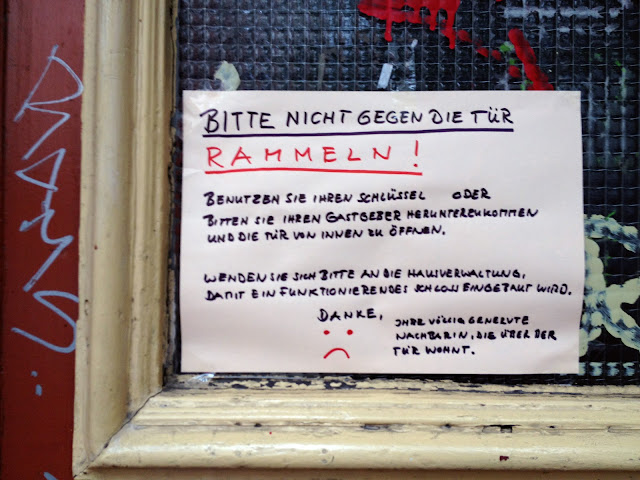 BITTE NICHT GEGEN DIE TÜR
RAMMELN!
BENUTZEN SIE IHREN SCHLÜSSEL ODER
BITTEN SIE IHREN GASTGEBER HERUNTERZUKOMMEN
UND DIE TÜR VON INNEN ZU ÖFFNEN.
WENDEN SIE SICH BITTE AN DIE HAUSVERWALTUNG,
DAMIT EIN FUNKTIONIERENDES SCHLOSS EINGEBAUT WIRD.
DANKE,
IHRE VÖLLIG GENERVTE
NACHBARIN, DIE ÜBER DER
TÜR WOHNT.